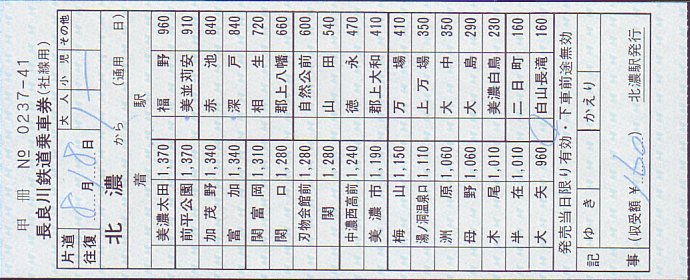 甲 冊 № 0237-41
長良川鉄道乗車券(社線用)
片道 往復 8月18日 大人 小児 その他
北濃から (通用 日)
着 駅
美濃太田 1,370 福野 960
前平公園 1,370 美並苅安 910
加茂野 1,340 赤池 840
富加 1,340 深戸 840
関富岡 1,310 相生 720
関口 1,280 郡上八幡 660
刃物会館前 1,280 自然公前 600
関 1,280 山田 540
中濃西高前 1,240 徳永 470
美濃市 1,190 郡上大和 410
梅山 1,150 万場 410
湯ノ洞温泉口 1,110 上万場 350
洲原 1,060 大中 350
母野 1,060 大島 290
木尾 1,010 美濃白鳥 230
半在 1,010 二日町 160
大矢 960 白山長滝 160
発売当日限り有効・下車前途無効
記事 ゆき かえり
(収受額 ¥160) 北濃駅発行